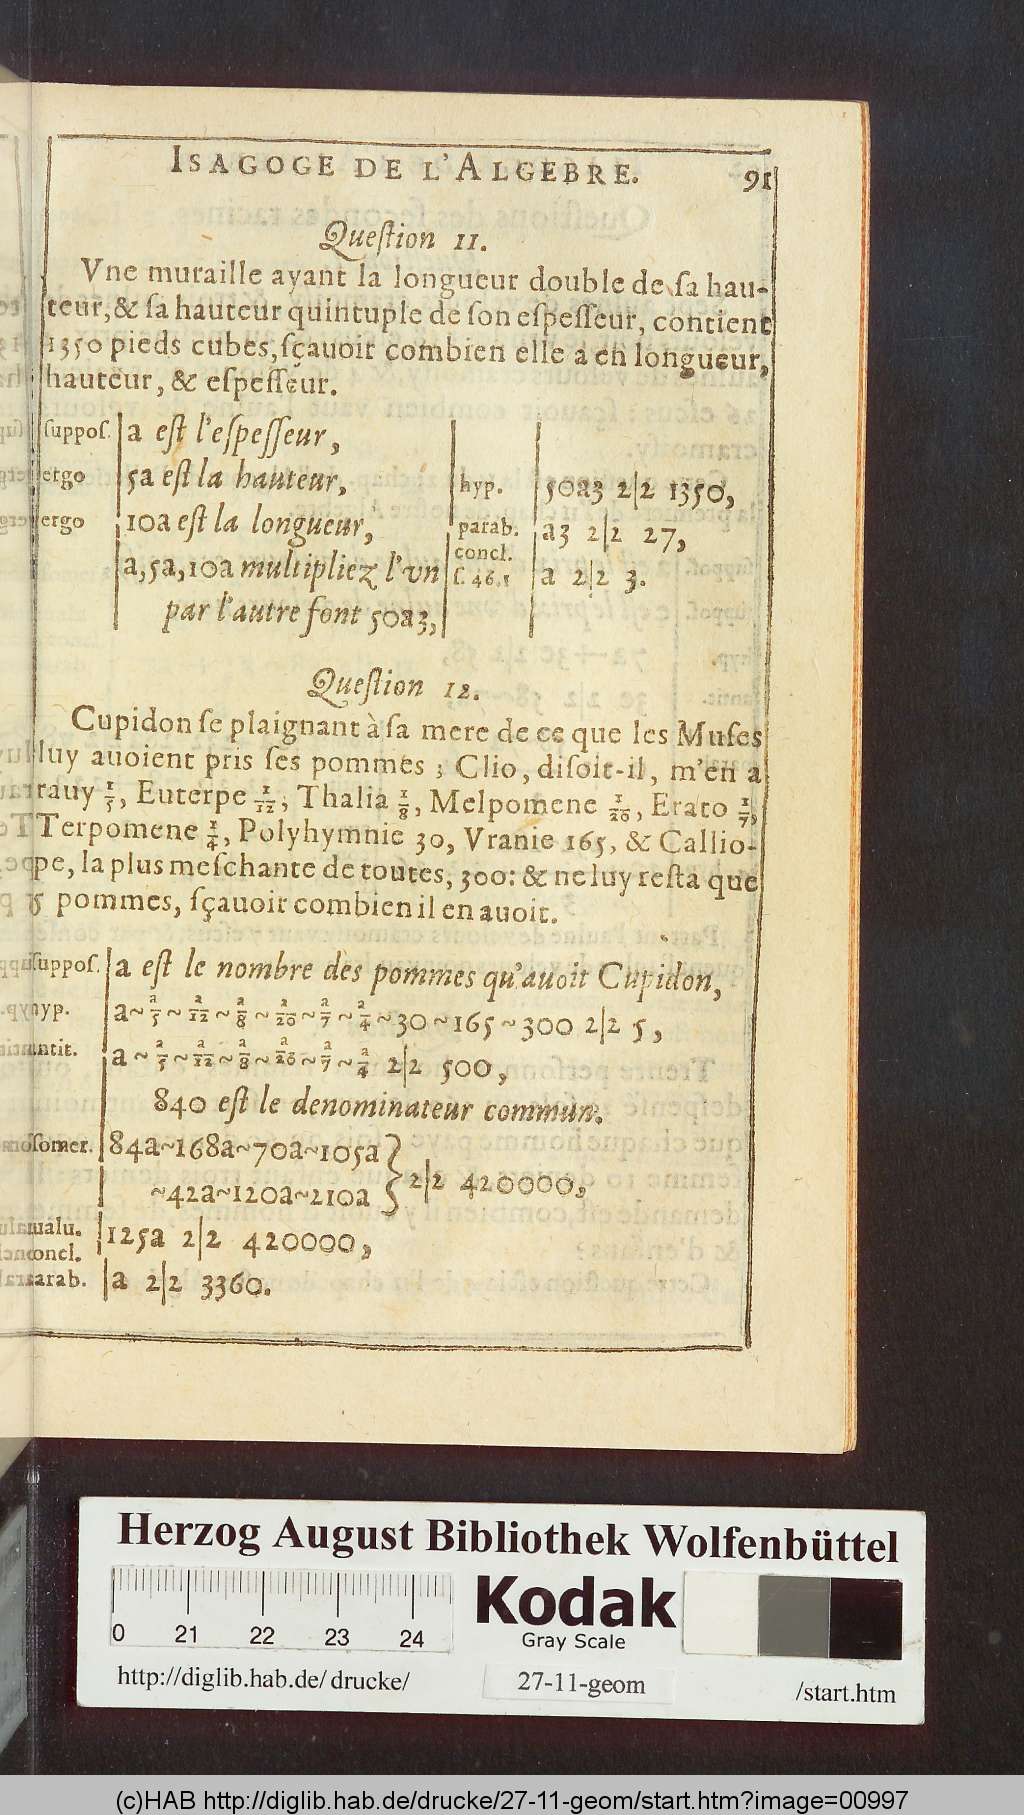 ISAGOGE DE L'ALGEBRE. 91
Question 11.
Vne muraille ayant la longueur double de sa hau-
teur, & sa hauteur quintuple de son espesseur, contient
1350 pieds cubes, sçauoir combien elle a en longueur,
hauteur, & espesseur.
suppos. a est l'espesseur,
ergo 5a est la hauteur,
ergo 10a est la longueur,
a, 5a, 10a multipliez l'vn
par l'autre font 50a3,
hyp. 50a3 2|2 1350,
parab. a3 2|2 27,
concl.
f. 46.1 a 2|2 3.
Question 12.
Cupidon se plaignant à sa mere de ce que les Muses
luy auoient pris ses pommes; Clio, disoit-il, m'en a
rauy 1/5, Euterpe 1/12, Thalia 1/8, Melpomene 1/20, Erato 1/7,
Terpomene 1/4, Polyhymnie 30, Vranie 165, & Callio-
pe, la plus meschante de toutes, 300: & ne luy resta que
5 pommes, sçauoir combien il en auoit.
suppos. a est le nombre des pommes qu'auoit Cupidon,
hyp. a~a/5~a/12~a/8~a/20~a/7~a/4~30~165~300 2|2 5,
antit. a~a/5~a/12~a/8~a/20~a/7~a/4 2|2 500,
840 est le denominateur commun.
isomer. 84a~168a~70a~105a
~42a~120a~210a } 2|2 420000,
ualu. 125a 2|2 420000,
concl.
parab. a 2|2 3360.
Herzog August Bibliothek Wolfenbüttel
Kodak
Gray Scale
0 21 22 23 24
http://diglib.hab.de/drucke/ 27-11-geom /start.htm
(c)HAB http://diglib.hab.de/drucke/27-11-geom/start.htm?image=00997